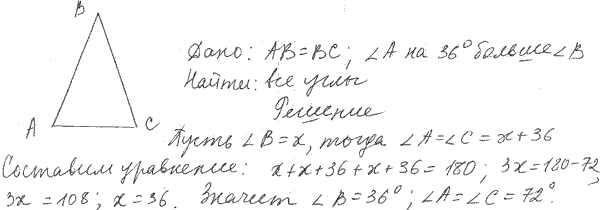 B
Дано: AB=BC; ∠A на 36° больше ∠B
Найти: все углы
Решение
A C
Пусть ∠B=x, тогда ∠A=∠C=x+36
Составим уравнение: x+x+36+x+36=180; 3x=180-72,
3x=108; x=36. Значит ∠B=36°; ∠A=∠C=72°.